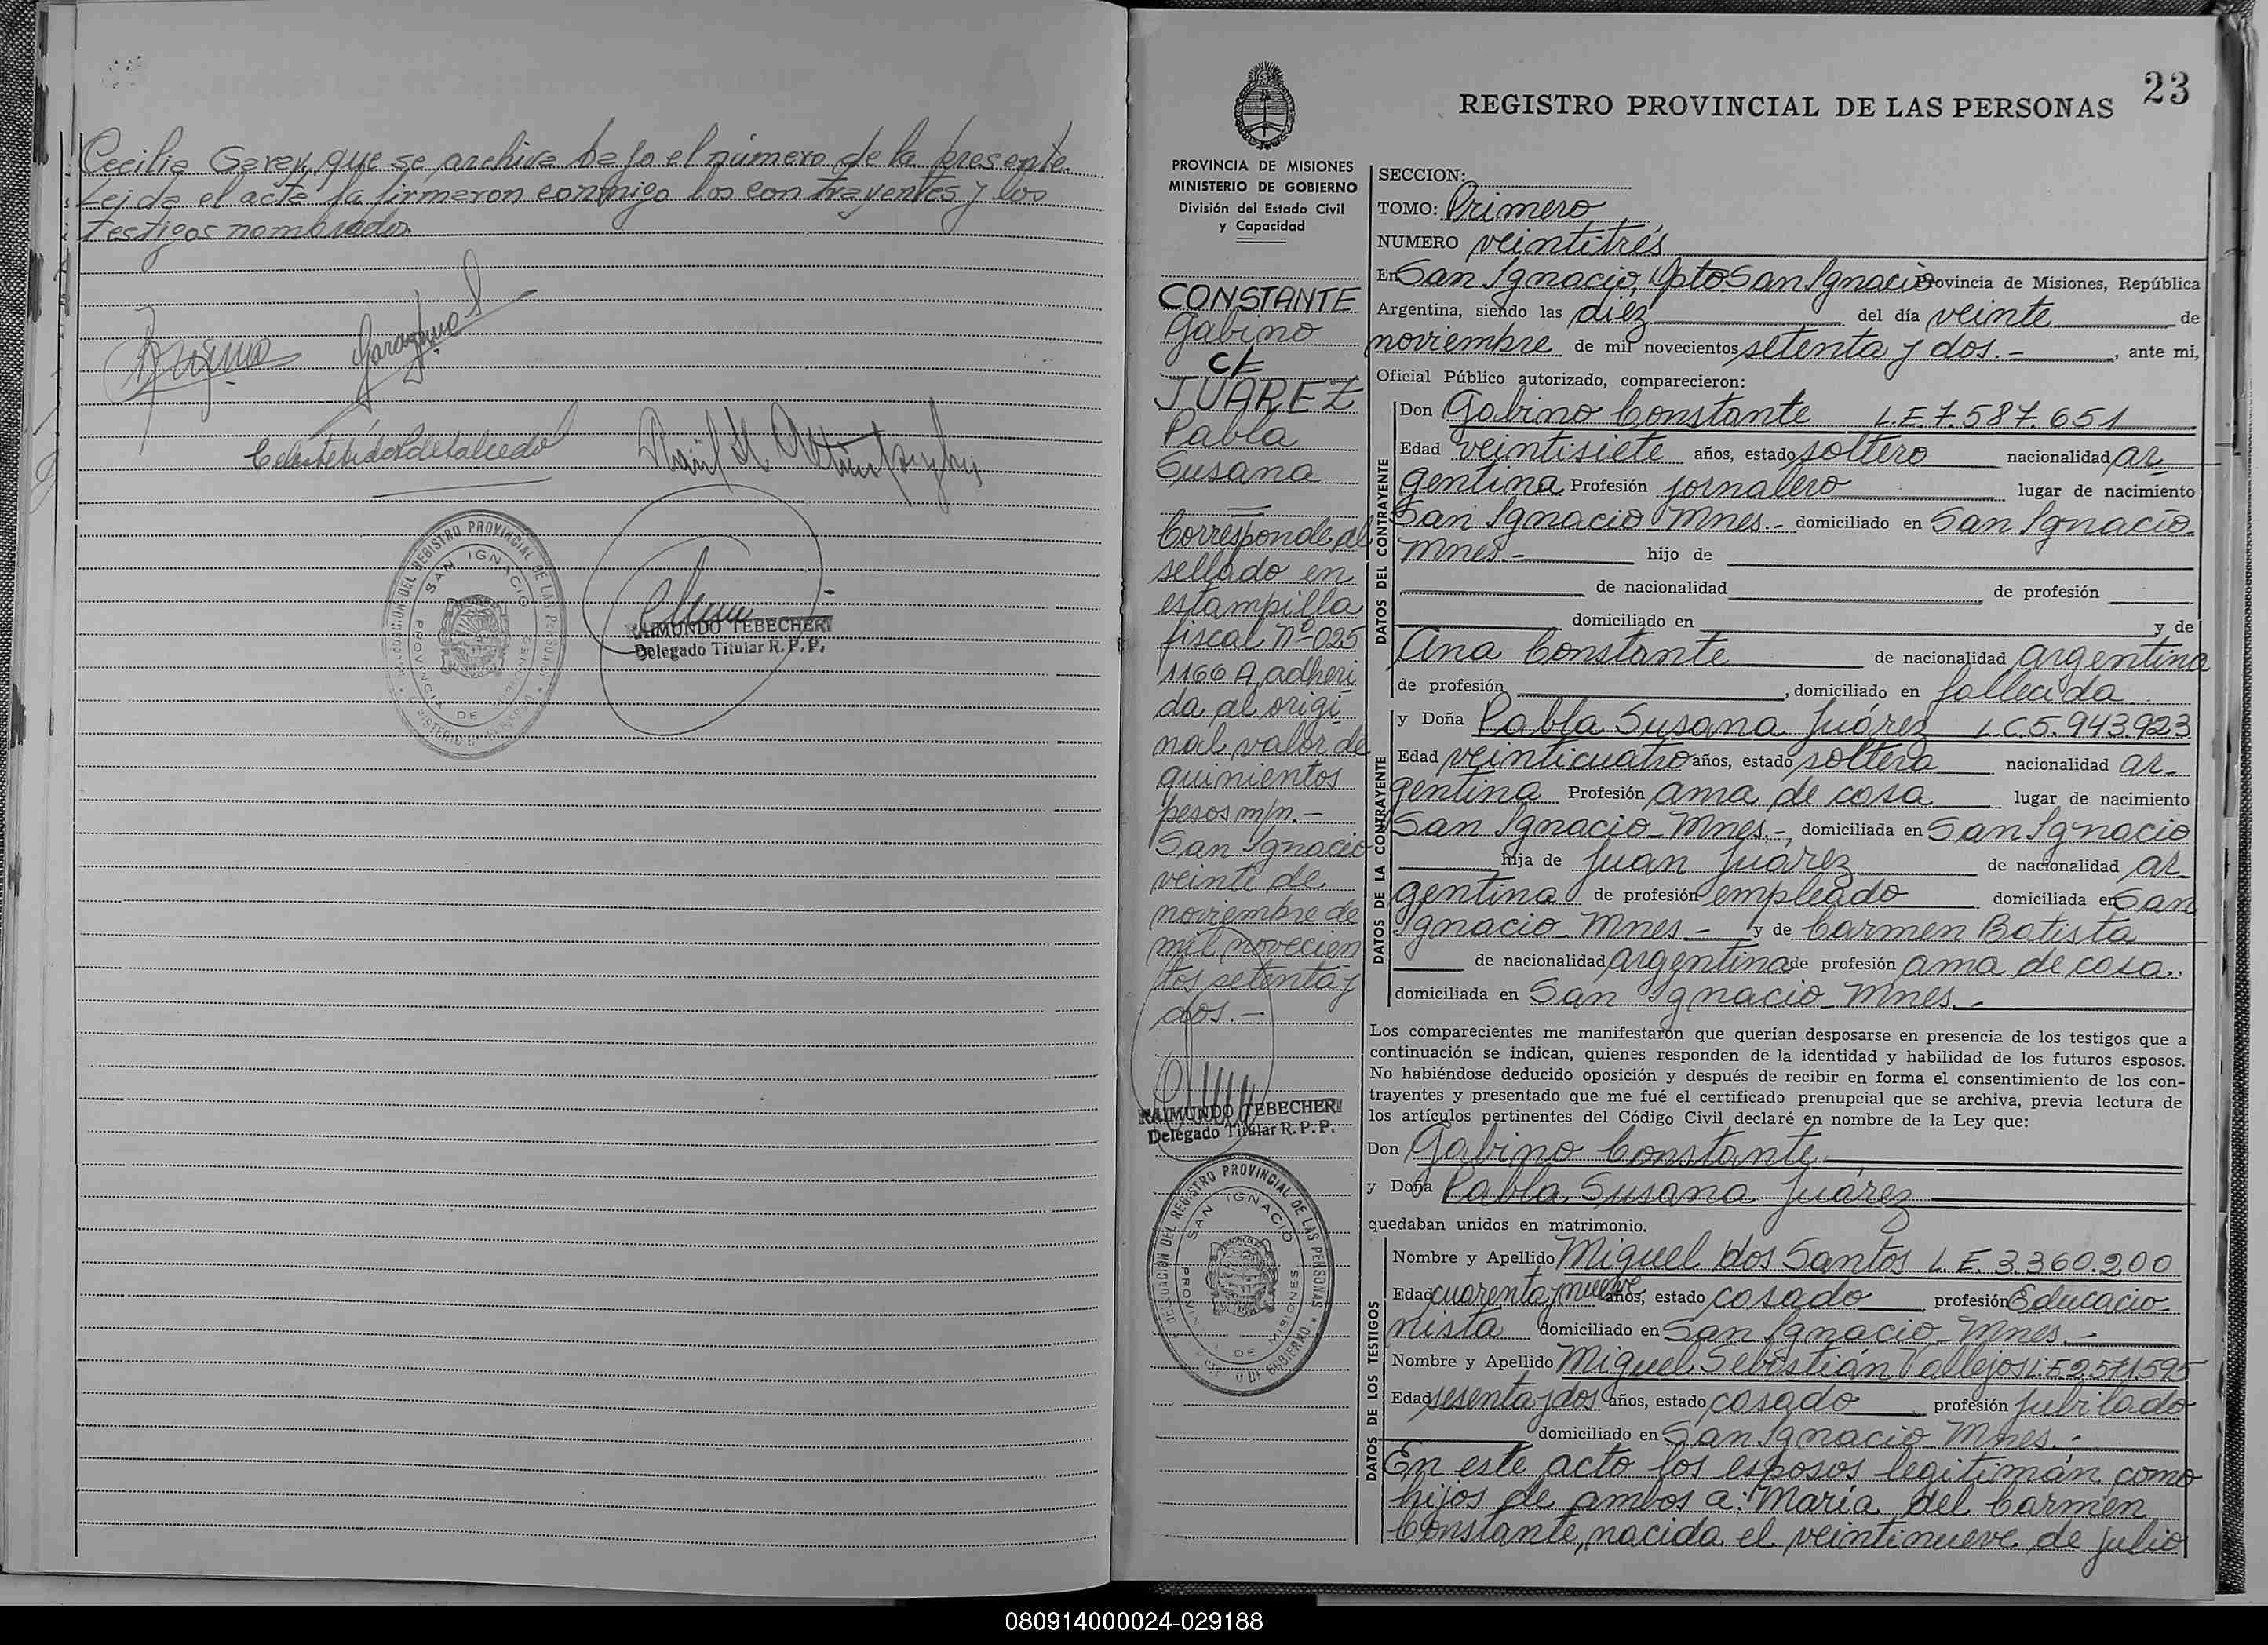 Cecilia Garay, que se archiva bajo el número de la presente.
Leida el acta la firmaron conmigo los contrayentes y los
testigos nombrados.
DELEGACION DEL REGISTRO PROVINCIAL DE LAS PERSONAS
SAN IGNACIO
PROVINCIA DE MISIONES
RAIMUNDO TEBECHERI
Delegado Titular R. P. P.
23
REGISTRO PROVINCIAL DE LAS PERSONAS
PROVINCIA DE MISIONES
MINISTERIO DE GOBIERNO
División del Estado Civil
y Capacidad
CONSTANTE
Gabino
c/
JUAREZ
Pabla
Susana
Corresponde al
sellado en
estampilla
fiscal Nº 025
1166 A, adheri
da al origi
nal valor de
quinientos
pesos m/n. -
San Ignacio
veinte de
noviembre de
mil novecien
tos setenta y
dos. -
RAIMUNDO TEBECHERI
Delegado Titular R. P. P.
DELEGACION DEL REGISTRO PROVINCIAL DE LAS PERSONAS
SAN IGNACIO
PROVINCIA DE MISIONES
SECCION:
TOMO: Primero
NUMERO veintitrés
En San Ignacio, Dpto San Ignacio Provincia de Misiones, República
Argentina, siendo las diéz del día veinte de
noviembre de mil novecientos setenta y dos. - , ante mi,
Oficial Público autorizado, comparecieron:
DATOS DEL CONTRAYENTE
Don Gabino Constante L.E. 7.587.651
Edad veintisiete años, estado soltero nacionalidad ar
gentina Profesión jornalero lugar de nacimiento
San Ignacio Mnes. - domiciliado en San Ignacio
Mnes. - hijo de
de nacionalidad de profesión
domiciliado en y de
Ana Constante de nacionalidad argentina
de profesión , domiciliado en fallecida
DATOS DE LA CONTRAYENTE
y Doña Pabla Susana Juárez L.C. 5.943.923
Edad veinticuatro años, estado soltera nacionalidad ar-
gentina Profesión ama de casa lugar de nacimiento
San Ignacio - Mnes. -, domiciliada en San Ignacio
hija de Juan Juárez de nacionalidad ar-
gentina de profesión empleado domiciliada en San
Ignacio - Mnes - y de Carmen Batista
de nacionalidad argentina de profesión ama de casa.,
domiciliada en San Ignacio - Mnes. -
Los comparecientes me manifestaron que querían desposarse en presencia de los testigos que a
continuación se indican, quienes responden de la identidad y habilidad de los futuros esposos.
No habiéndose deducido oposición y después de recibir en forma el consentimiento de los con-
trayentes y presentado que me fué el certificado prenupcial que se archiva, previa lectura de
los artículos pertinentes del Código Civil declaré en nombre de la Ley que:
Don Gabino Constante
y Doña Pabla Susana Juárez
quedaban unidos en matrimonio.
DATOS DE LOS TESTIGOS
Nombre y Apellido Miguel dos Santos L.E. 3.360.200
Edad cuarenta y nueve años, estado casado profesión Educacio-
nista domiciliado en San Ignacio - Mnes. -
Nombre y Apellido Miguel Sebastián Vallejos L.E. 2.571.595
Edad sesenta y dos años, estado casado profesión jubilado
domiciliado en San Ignacio - Mnes. -
En este acto los esposos legitimán como
hijos de ambos a: María del Carmen
Constante, nacida el veintinueve de julio
080914000024-029188